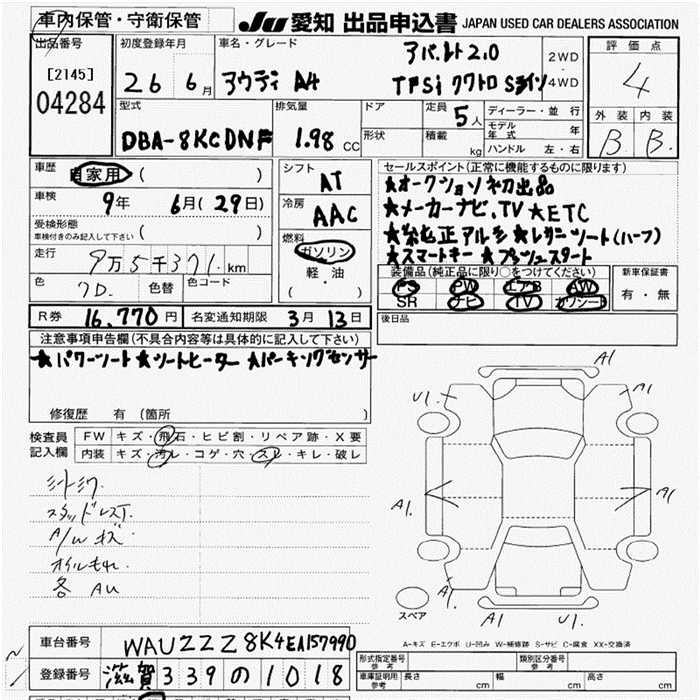 車内保管・守衛保管
JU 愛知 出品申込書 JAPAN USED CAR DEALERS ASSOCIATION
出品番号
[2145]
04284
初度登録年月
26 6月
車名・グレード
アウディ A4
アバント2.0
TFSi クワトロ Sライン
2WD
4WD
評価点
4
外装 内装
B B
型式
DBA-8KCDNF
排気量
1.98 CC
ドア
形状
定員
5人
積載
kg
ディーラー・並行
モデル年式 年
ハンドル 左・右
車歴
自家用 ( )
車検
9年 6月(29日)
受検形態
車検付きのみ記入して下さい ( )
走行
9万5千371km
色
色替
色コード
シフト
AT
冷房
AAC
燃料
ガソリン
軽・油
( )
セールスポイント(正常に機能するものに限ります)
★オークション初出品
★メーカーナビ.TV ★ETC
★純正アルミ ★レザーシート(ハーフ)
★スマートキー ★プッシュスタート
装備品(純正品に限り○をつけてください)
PS PW エアB AW
SR ナビ TV ガワシート
新車保証書
有・無
後日品
R券 16,770円
名変通知期限 3月13日
注意事項申告欄(不具合内容等は具体的に記入して下さい)
★パワーシート ★シートヒーター ★パーキングセンサー
修復歴 有 (箇所 )
検査員記入欄
FW キズ・飛石・ヒビ割・リペア跡・X要
内装 キズ・汚レ・コゲ・穴・スレ・キレ・破レ
シートシワ
スタッドレスT.
A/W キズ
オイルもれ
各 AU
A1
U1.
A1
A1.
A1
A1
A1
U1.
スペア
A-キズ E-エクボ U-凹み W-補修跡 S-サビ C-腐食 XX-交換済
車台番号
WAUZZZ8K4EA157990
登録番号
滋賀 339 の 1018
形式指定番号
参考
類別区分番号
参考
車庫証明用
参考
長さ cm 幅 cm 高さ cm